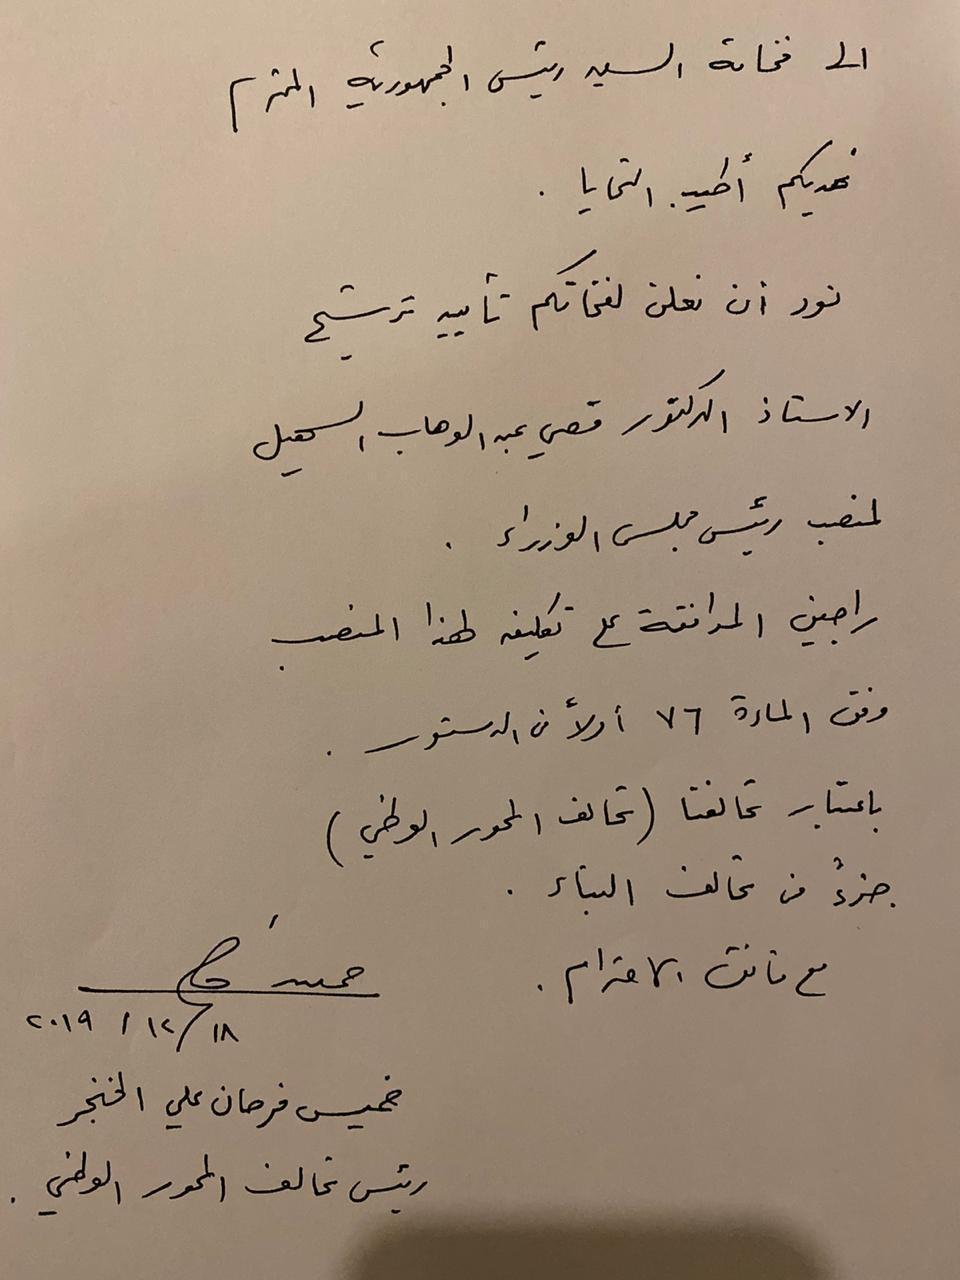 الى فخامة السيد رئيس الجمهورية المحترم
نهديكم أطيب التحايا .
نود أن نعلن لفخامتكم تأييد ترشيح
الاستاذ الدكتور قصي عبد الوهاب السهيل
لمنصب رئيس مجلس الوزراء .
راجين الموافقة على تكليفه لهذا المنصب
وفق المادة ٧٦ أولاً من الدستور .
باعتبار تحالفنا (تحالف المحور الوطني)
جزءٌ من تحالف البناء .
مع فائق الاحترام .
خميس
١٨/١٢/٢٠١٩
خميس فرحان علي الخنجر
رئيس تحالف المحور الوطني .